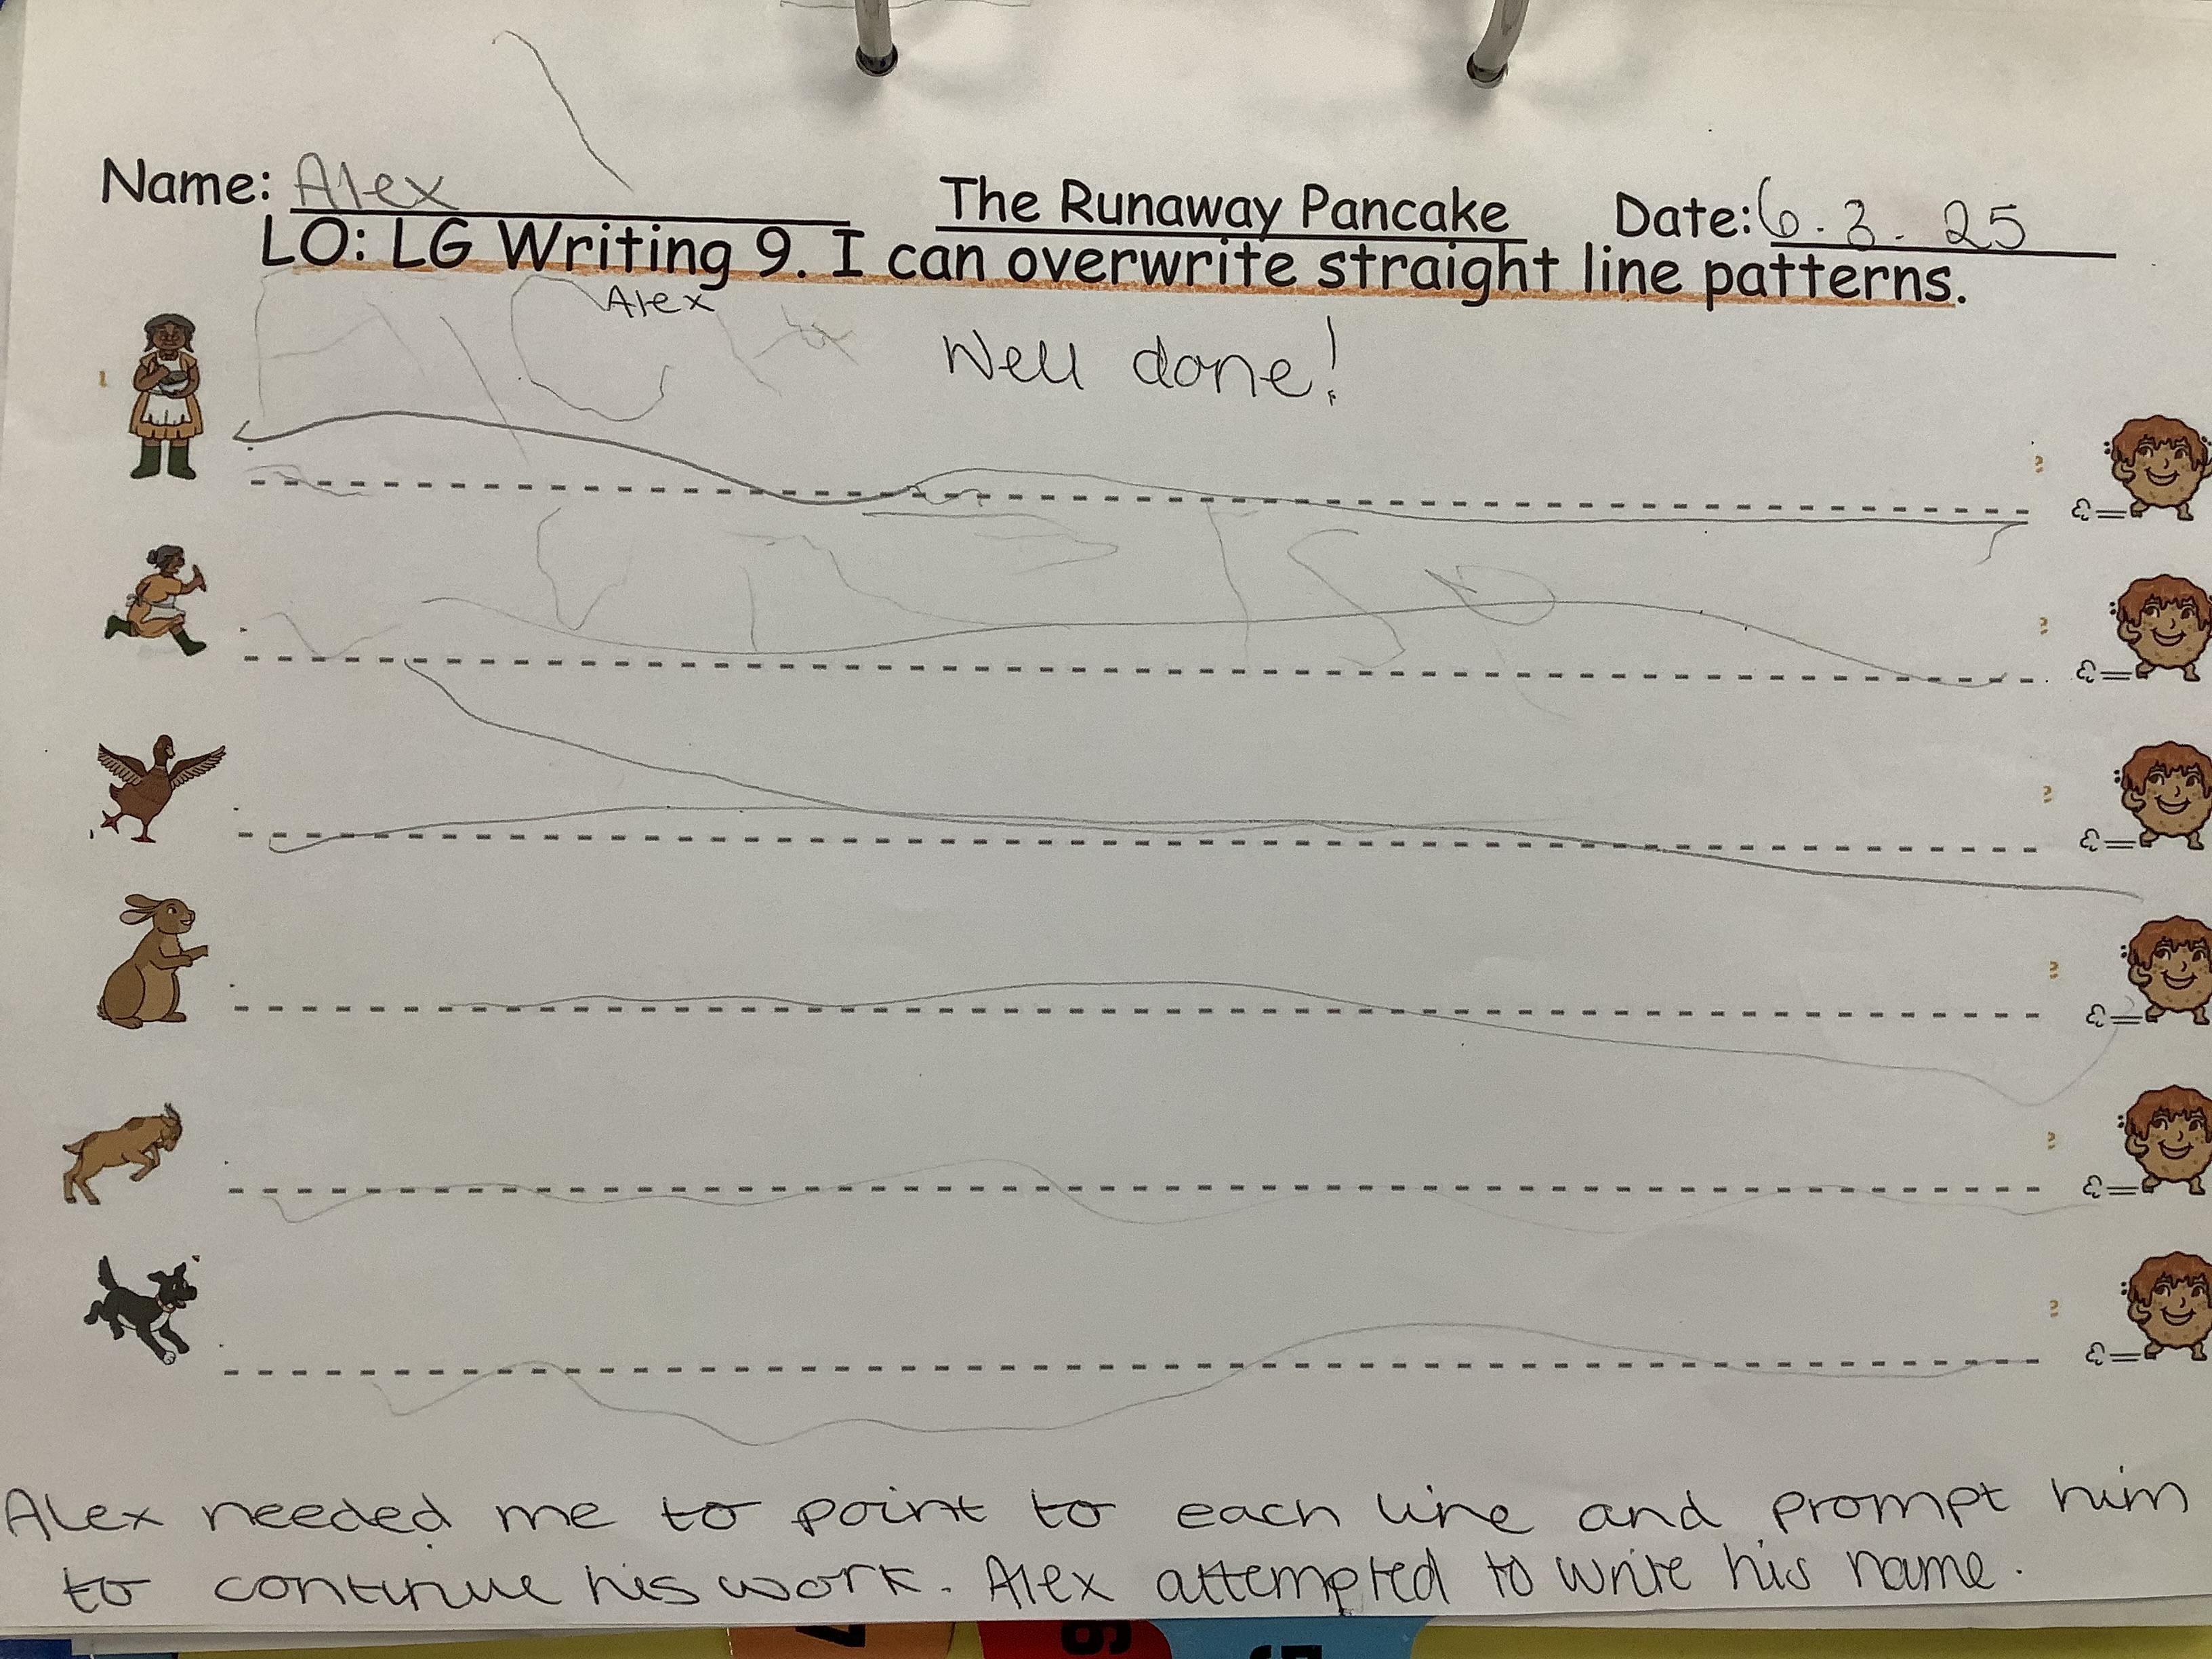 Name: Alex The Runaway Pancake Date: 6.3.25
LO: LG Writing 9. I can overwrite straight line patterns.
Alex
Well done!
Alex needed me to point to each line and prompt him
to continue his work. Alex attempted to write his name.
7 6 5